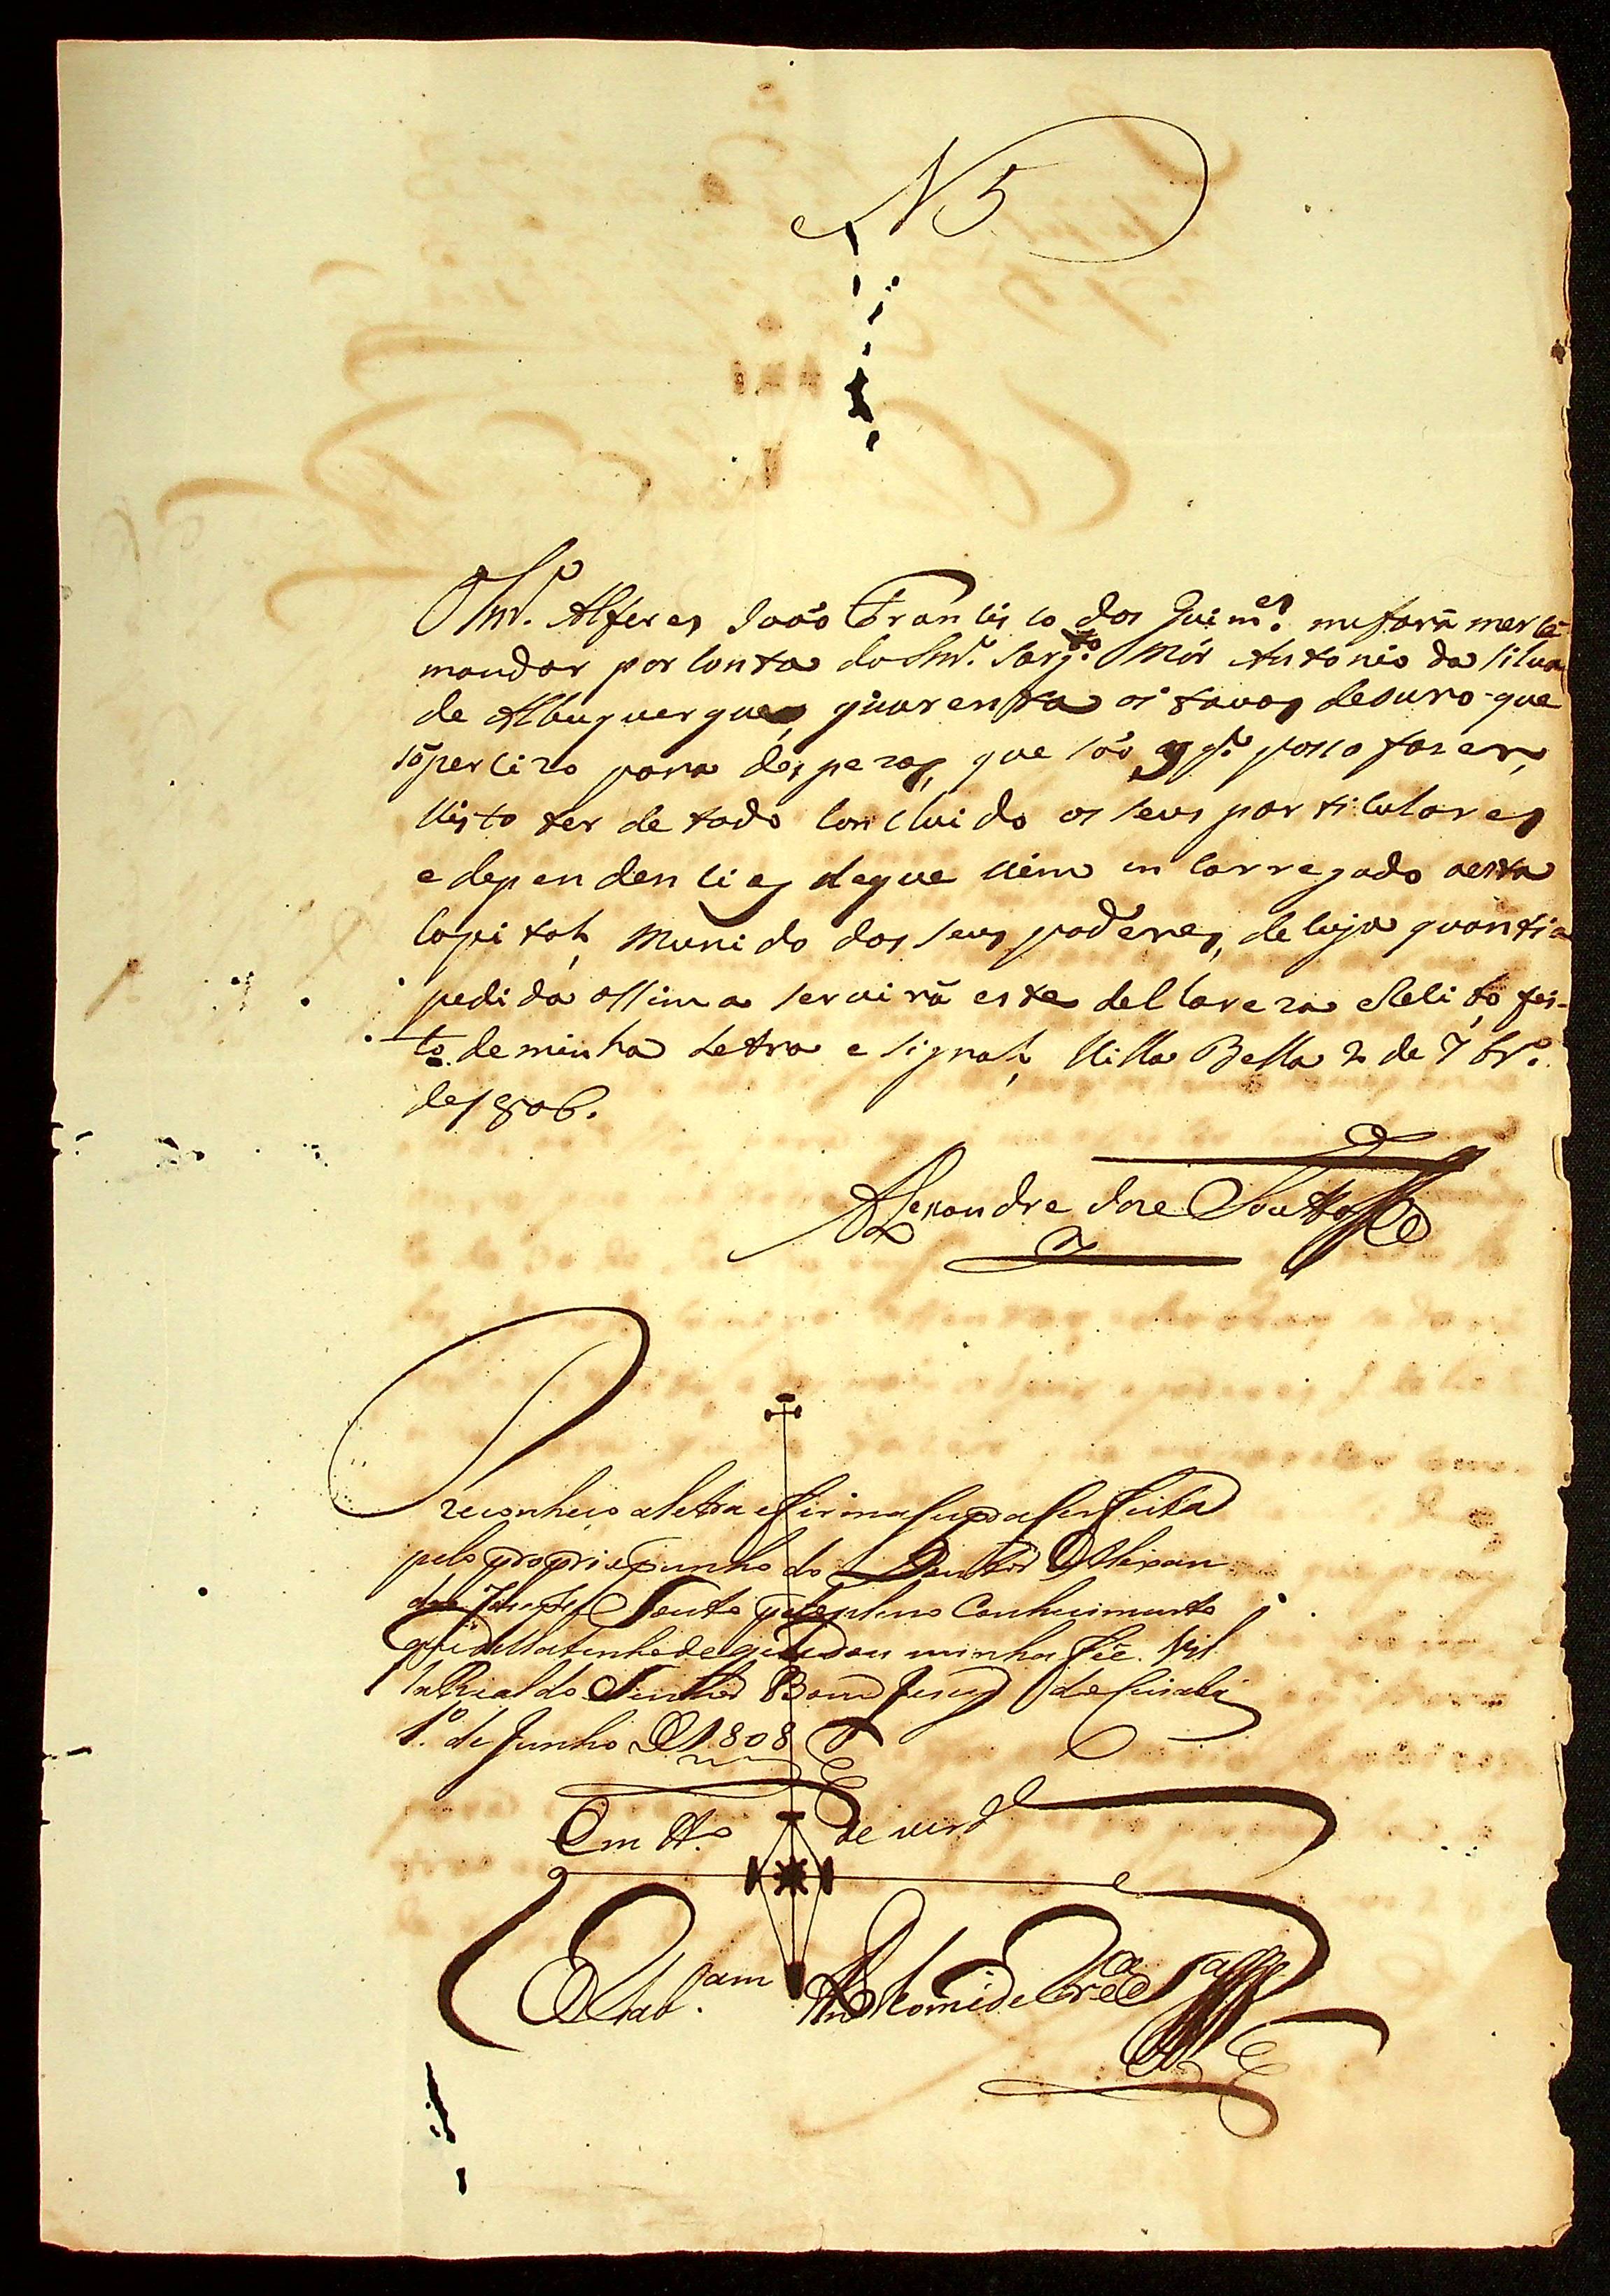 N 5
Snr. Alferes João Francisco dos Guim.es me fará mercê
mandar por conta do Snr. Sarg.to Mór Antonio da Silva
de Albuquerque, quarenta oitavas de ouro que
só percizo para despezas, que são posso fazer,
visto ter de todo concluido os seus particulares
e dependencias de que vim encarregado a esta
Capital, munido dos seus poderes, de cuja quantia
pedida assima servirá este de clareza e Recibo, fei-
to de minha Letra e signal, Villa Bella 2 de 7br.o
de 1806.
Alexandre Jose Soutto
Reconheço a letra e firma supra ser feita
pelo proprio punho do Doutor Alexan
dre José Souto pelo pleno Conhecimento
que della tenho de que dou minha fée. Vil
la Real do Senhor Bom Jesus de Cuiabá
1.o de Junho de 1808
Em tt.o de verd.e
O Tab.am